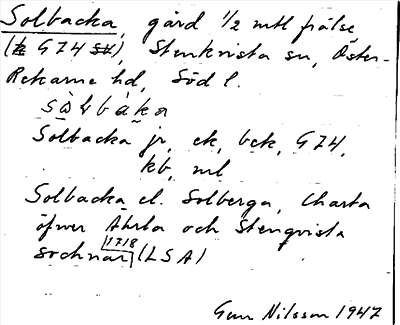 Solbacka, gård 1/2 mtl frälse
(1/2 G74 sk), Stenkvista sn, Öster-
Rekarne hd, Söd l.
sòḷbàka
Solbacka jr, ek, bek, G74,
kb, ml
Solbacka el. Solberga, Charta
öfver Ahrla och Stenqvista
sochnar 1718 (LSA)
Gun Nilsson 1947